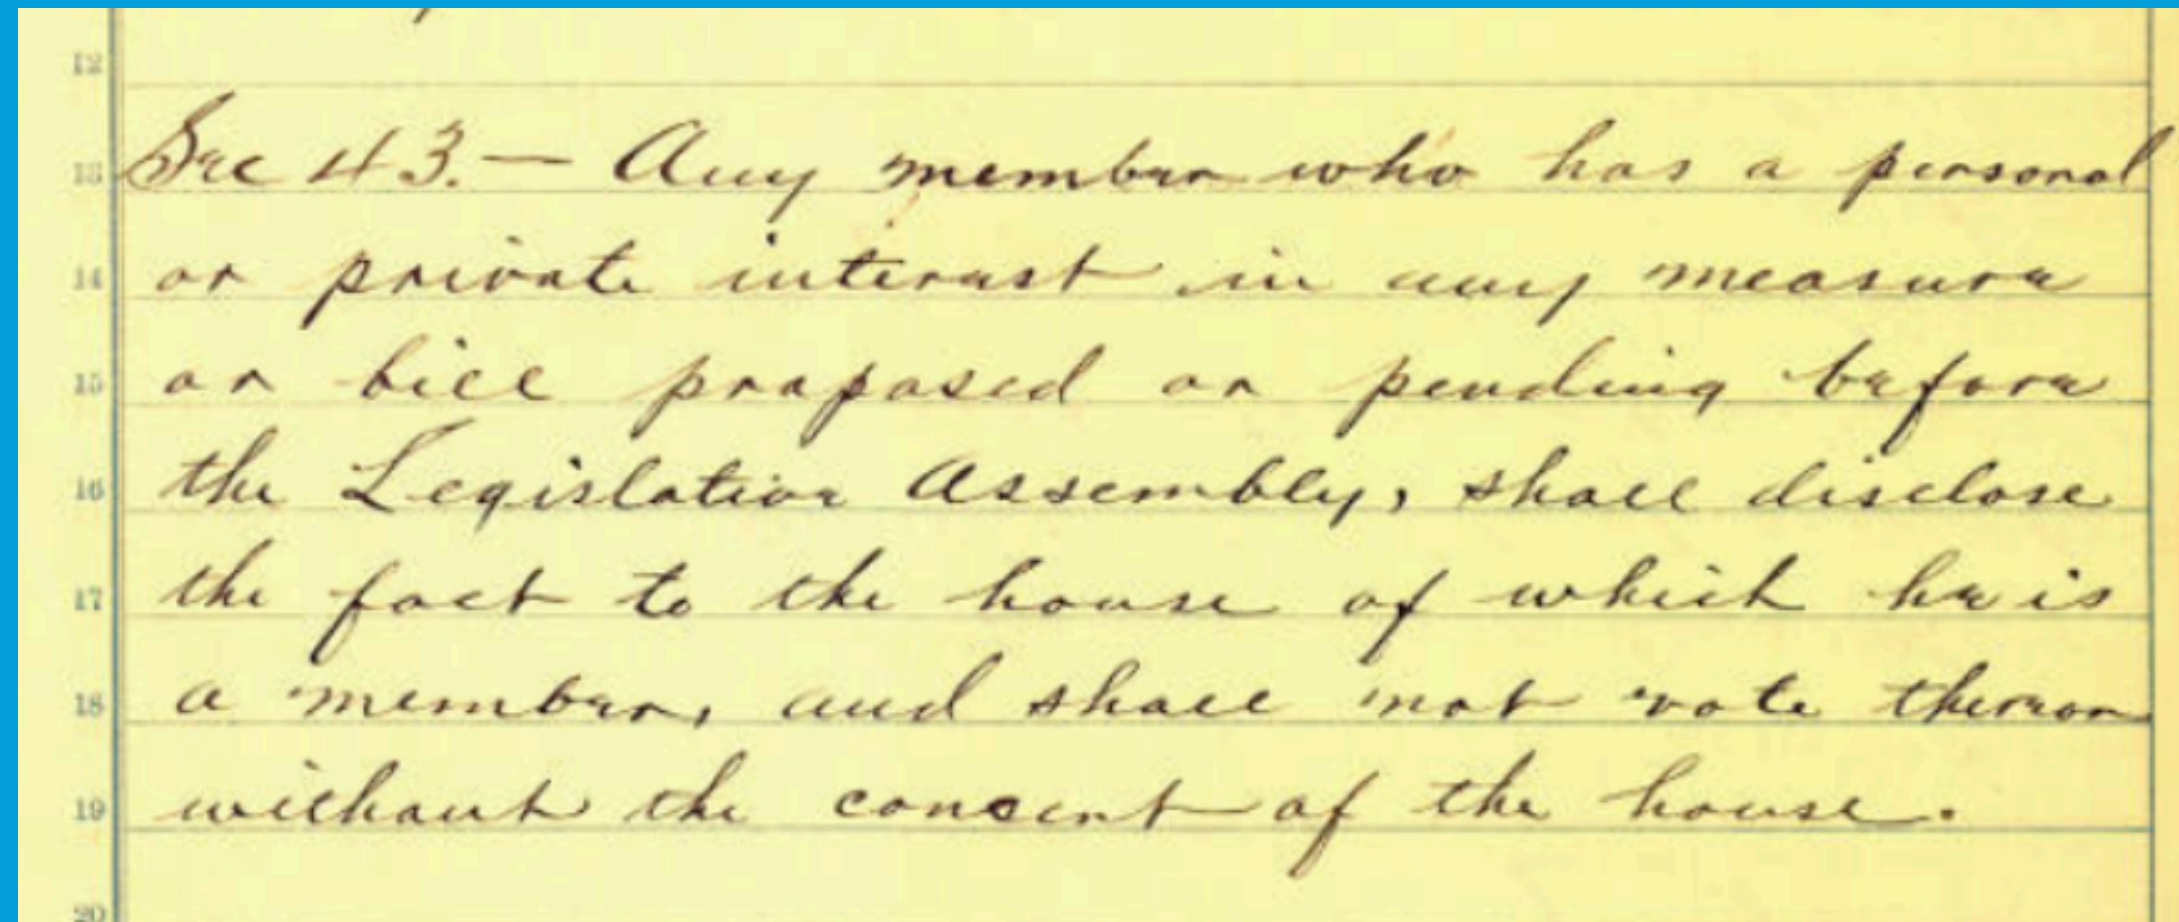 12
13 Sec 43. — Any member who has a personal
14 or private interest in any measure
15 or bill proposed or pending before
16 the Legislative Assembly, shall disclose
17 the fact to the house of which he is
18 a member, and shall not vote thereon
19 without the concent of the house.
20